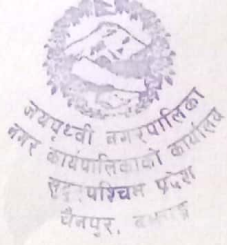 जयपृथ्वी नगरपालिका
नगर कार्यपालिकाको कार्यालय
सुदूरपश्चिम प्रदेश
चैनपुर, बझाङ्ग